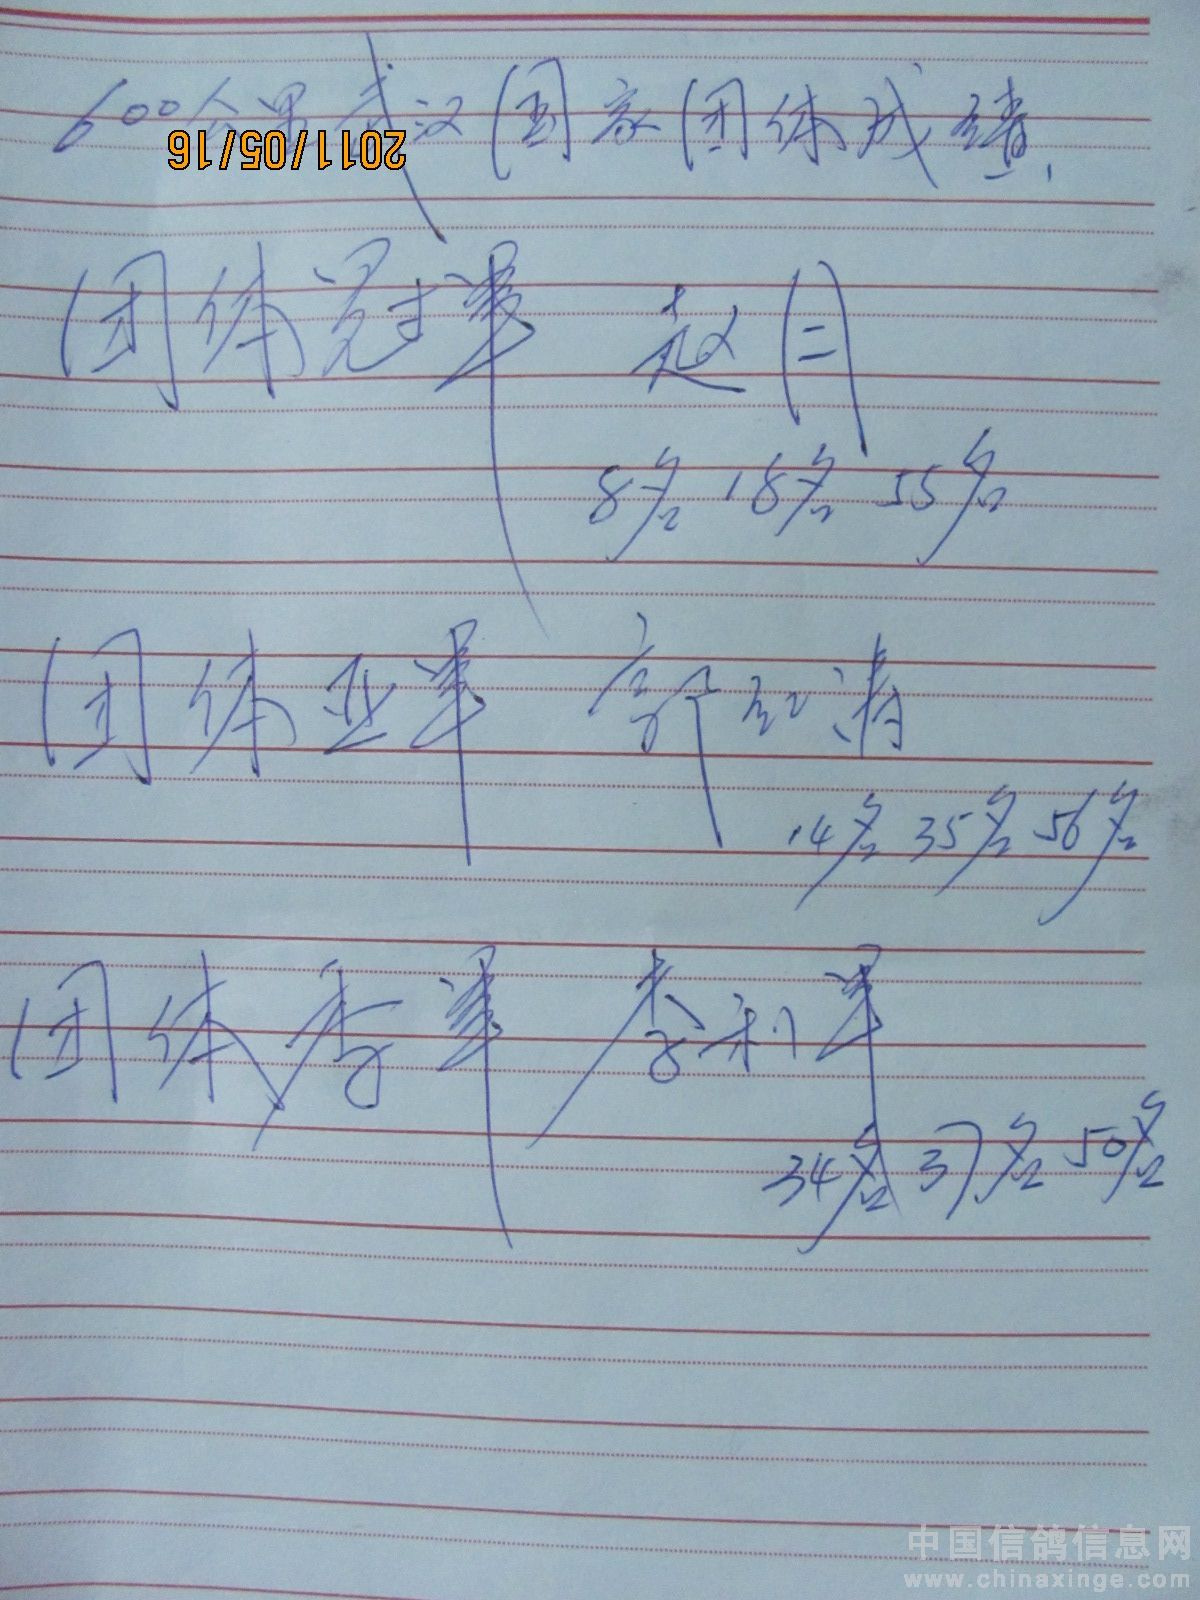 600公里武汉国家团体成绩.
2011/05/16
团体冠军 赵
8名 18名 55名
团体亚军 郭 清
14名 35名 56名
团体季军 李利军
34名 37名 50名
中国信鸽信息网
www.chinaxinge.com